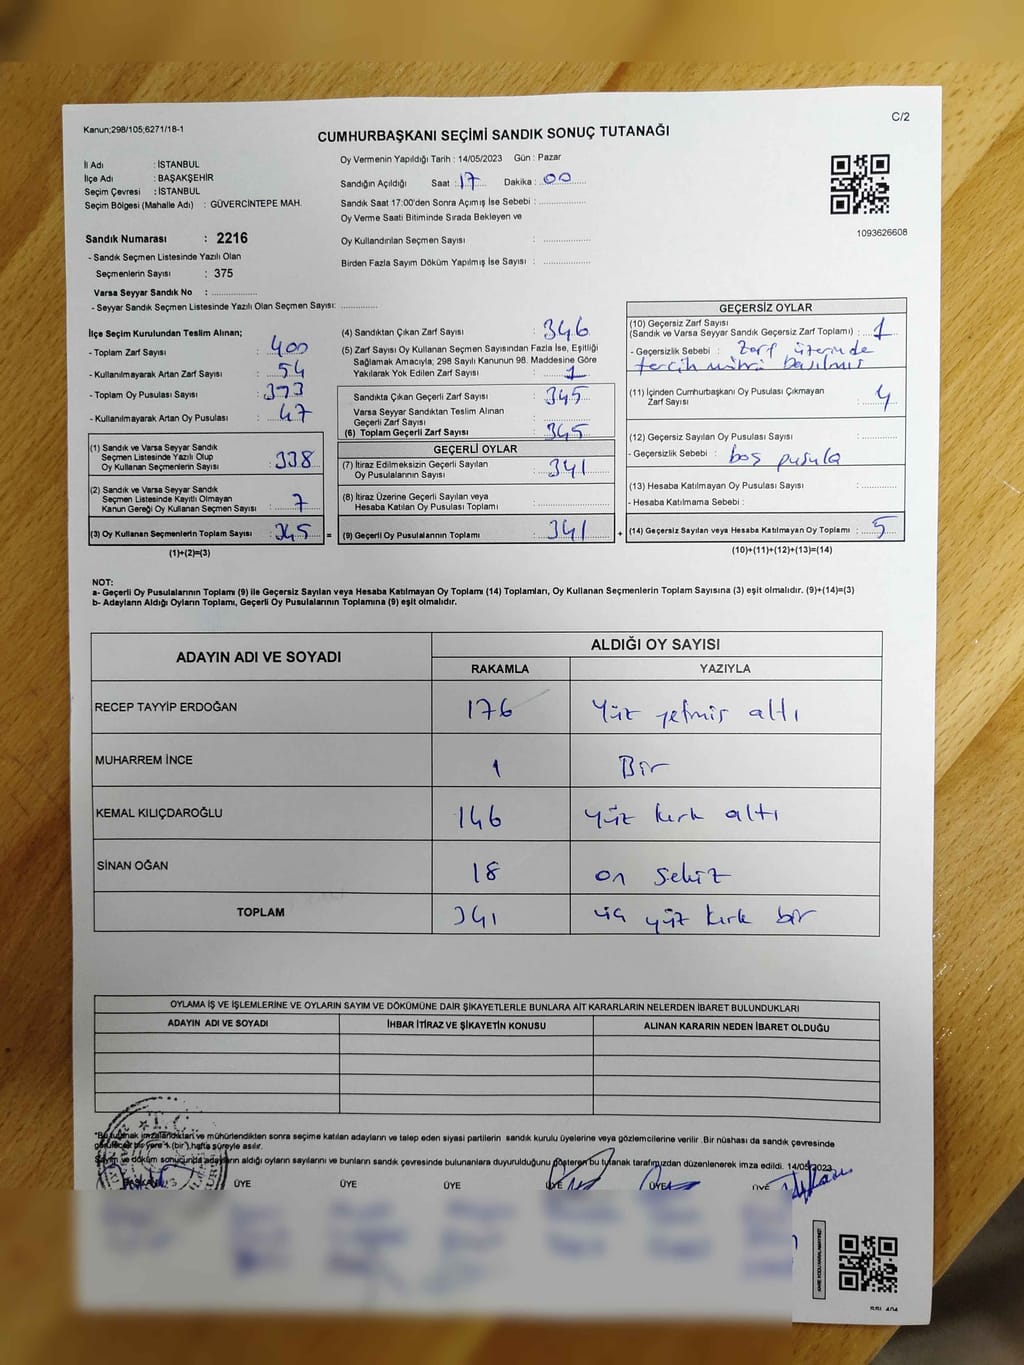 Kanun;298/105;6271/18-1
C/2
CUMHURBAŞKANI SEÇİMİ SANDIK SONUÇ TUTANAĞI
İl Adı : İSTANBUL
İlçe Adı : BAŞAKŞEHİR
Seçim Çevresi : İSTANBUL
Seçim Bölgesi (Mahalle Adı) : GÜVERCİNTEPE MAH.
Sandık Numarası : 2216
- Sandık Seçmen Listesinde Yazılı Olan
Seçmenlerin Sayısı : 375
Varsa Seyyar Sandık No : ..............
- Seyyar Sandık Seçmen Listesinde Yazılı Olan Seçmen Sayısı: ............
Oy Vermenin Yapıldığı Tarih : 14/05/2023 Gün : Pazar
Sandığın Açıldığı Saat : 17 Dakika : 00
Sandık Saat 17:00'den Sonra Açımış İse Sebebi : ................
Oy Verme Saati Bitiminde Sırada Bekleyen ve
Oy Kullandırılan Seçmen Sayısı : ................
Birden Fazla Sayım Döküm Yapılmış İse Sayısı : ................
1093626608
İlçe Seçim Kurulundan Teslim Alınan;
- Toplam Zarf Sayısı : 400
- Kullanılmayarak Artan Zarf Sayısı : 54
- Toplam Oy Pusulası Sayısı : 393
- Kullanılmayarak Artan Oy Pusulası : 47
(1) Sandık ve Varsa Seyyar Sandık
Seçmen Listesinde Yazılı Olup
Oy Kullanan Seçmenlerin Sayısı : 338
(2) Sandık ve Varsa Seyyar Sandık
Seçmen Listesinde Kayıtlı Olmayan
Kanun Gereği Oy Kullanan Seçmen Sayısı : 7
(3) Oy Kullanan Seçmenlerin Toplam Sayısı : 345 =
(1)+(2)=(3)
(4) Sandıktan Çıkan Zarf Sayısı : 346
(5) Zarf Sayısı Oy Kullanan Seçmen Sayısından Fazla İse, Eşitliği
Sağlamak Amacıyla; 298 Sayılı Kanunun 98. Maddesine Göre
Yakılarak Yok Edilen Zarf Sayısı : 1
Sandıkta Çıkan Geçerli Zarf Sayısı : 345
Varsa Seyyar Sandıktan Teslim Alınan
Geçerli Zarf Sayısı : ................
(6) Toplam Geçerli Zarf Sayısı : 345
GEÇERLİ OYLAR
(7) İtiraz Edilmeksizin Geçerli Sayılan
Oy Pusulalarının Sayısı : 341
(8) İtiraz Üzerine Geçerli Sayılan veya
Hesaba Katılan Oy Pusulası Toplamı : ................
(9) Geçerli Oy Pusulalarının Toplamı : 341 +
GEÇERSİZ OYLAR
(10) Geçersiz Zarf Sayısı
(Sandık ve Varsa Seyyar Sandık Geçersiz Zarf Toplamı) : 1
- Geçersizlik Sebebi : Zarf üzerinde
tercih mührü basılmış
(11) İçinden Cumhurbaşkanı Oy Pusulası Çıkmayan
Zarf Sayısı : 4
(12) Geçersiz Sayılan Oy Pusulası Sayısı : ............
- Geçersizlik Sebebi : boş pusula
(13) Hesaba Katılmayan Oy Pusulası Sayısı : ............
- Hesaba Katılmama Sebebi :
(14) Geçersiz Sayılan veya Hesaba Katılmayan Oy Toplamı : 5
(10)+(11)+(12)+(13)=(14)
NOT:
a- Geçerli Oy Pusulalarının Toplamı (9) ile Geçersiz Sayılan veya Hesaba Katılmayan Oy Toplamı (14) Toplamları, Oy Kullanan Seçmenlerin Toplam Sayısına (3) eşit olmalıdır. (9)+(14)=(3)
b- Adayların Aldığı Oyların Toplamı, Geçerli Oy Pusulalarının Toplamına (9) eşit olmalıdır.
ADAYIN ADI VE SOYADI
ALDIĞI OY SAYISI
RAKAMLA YAZIYLA
RECEP TAYYİP ERDOĞAN 176 Yüz yetmiş altı
MUHARREM İNCE 1 Bir
KEMAL KILIÇDAROĞLU 146 yüz kırk altı
SİNAN OĞAN 18 on sekiz
TOPLAM 341 üç yüz kırk bir
OYLAMA İŞ VE İŞLEMLERİNE VE OYLARIN SAYIM VE DÖKÜMÜNE DAİR ŞİKAYETLERLE BUNLARA AİT KARARLARIN NELERDEN İBARET BULUNDUKLARI
ADAYIN ADI VE SOYADI İHBAR İTİRAZ VE ŞİKAYETİN KONUSU ALINAN KARARIN NEDEN İBARET OLDUĞU
"Bu tutanak imzalandıktan ve mühürlendikten sonra seçime katılan adayların ve talep eden siyasi partilerin sandık kurulu üyelerine veya gözlemcilerine verilir. Bir nüshası da sandık çevresinde
görülecek bir yere 1 (bir) hafta süreyle asılır.
Sayım ve döküm sonucunda adayların aldığı oyların sayılarını ve bunların sandık çevresinde bulunanlara duyurulduğunu gösteren bu tutanak tarafımızdan düzenlenerek imza edildi. 14/05/2023
BAŞKAN ÜYE ÜYE ÜYE ÜYE ÜYE ÜYE